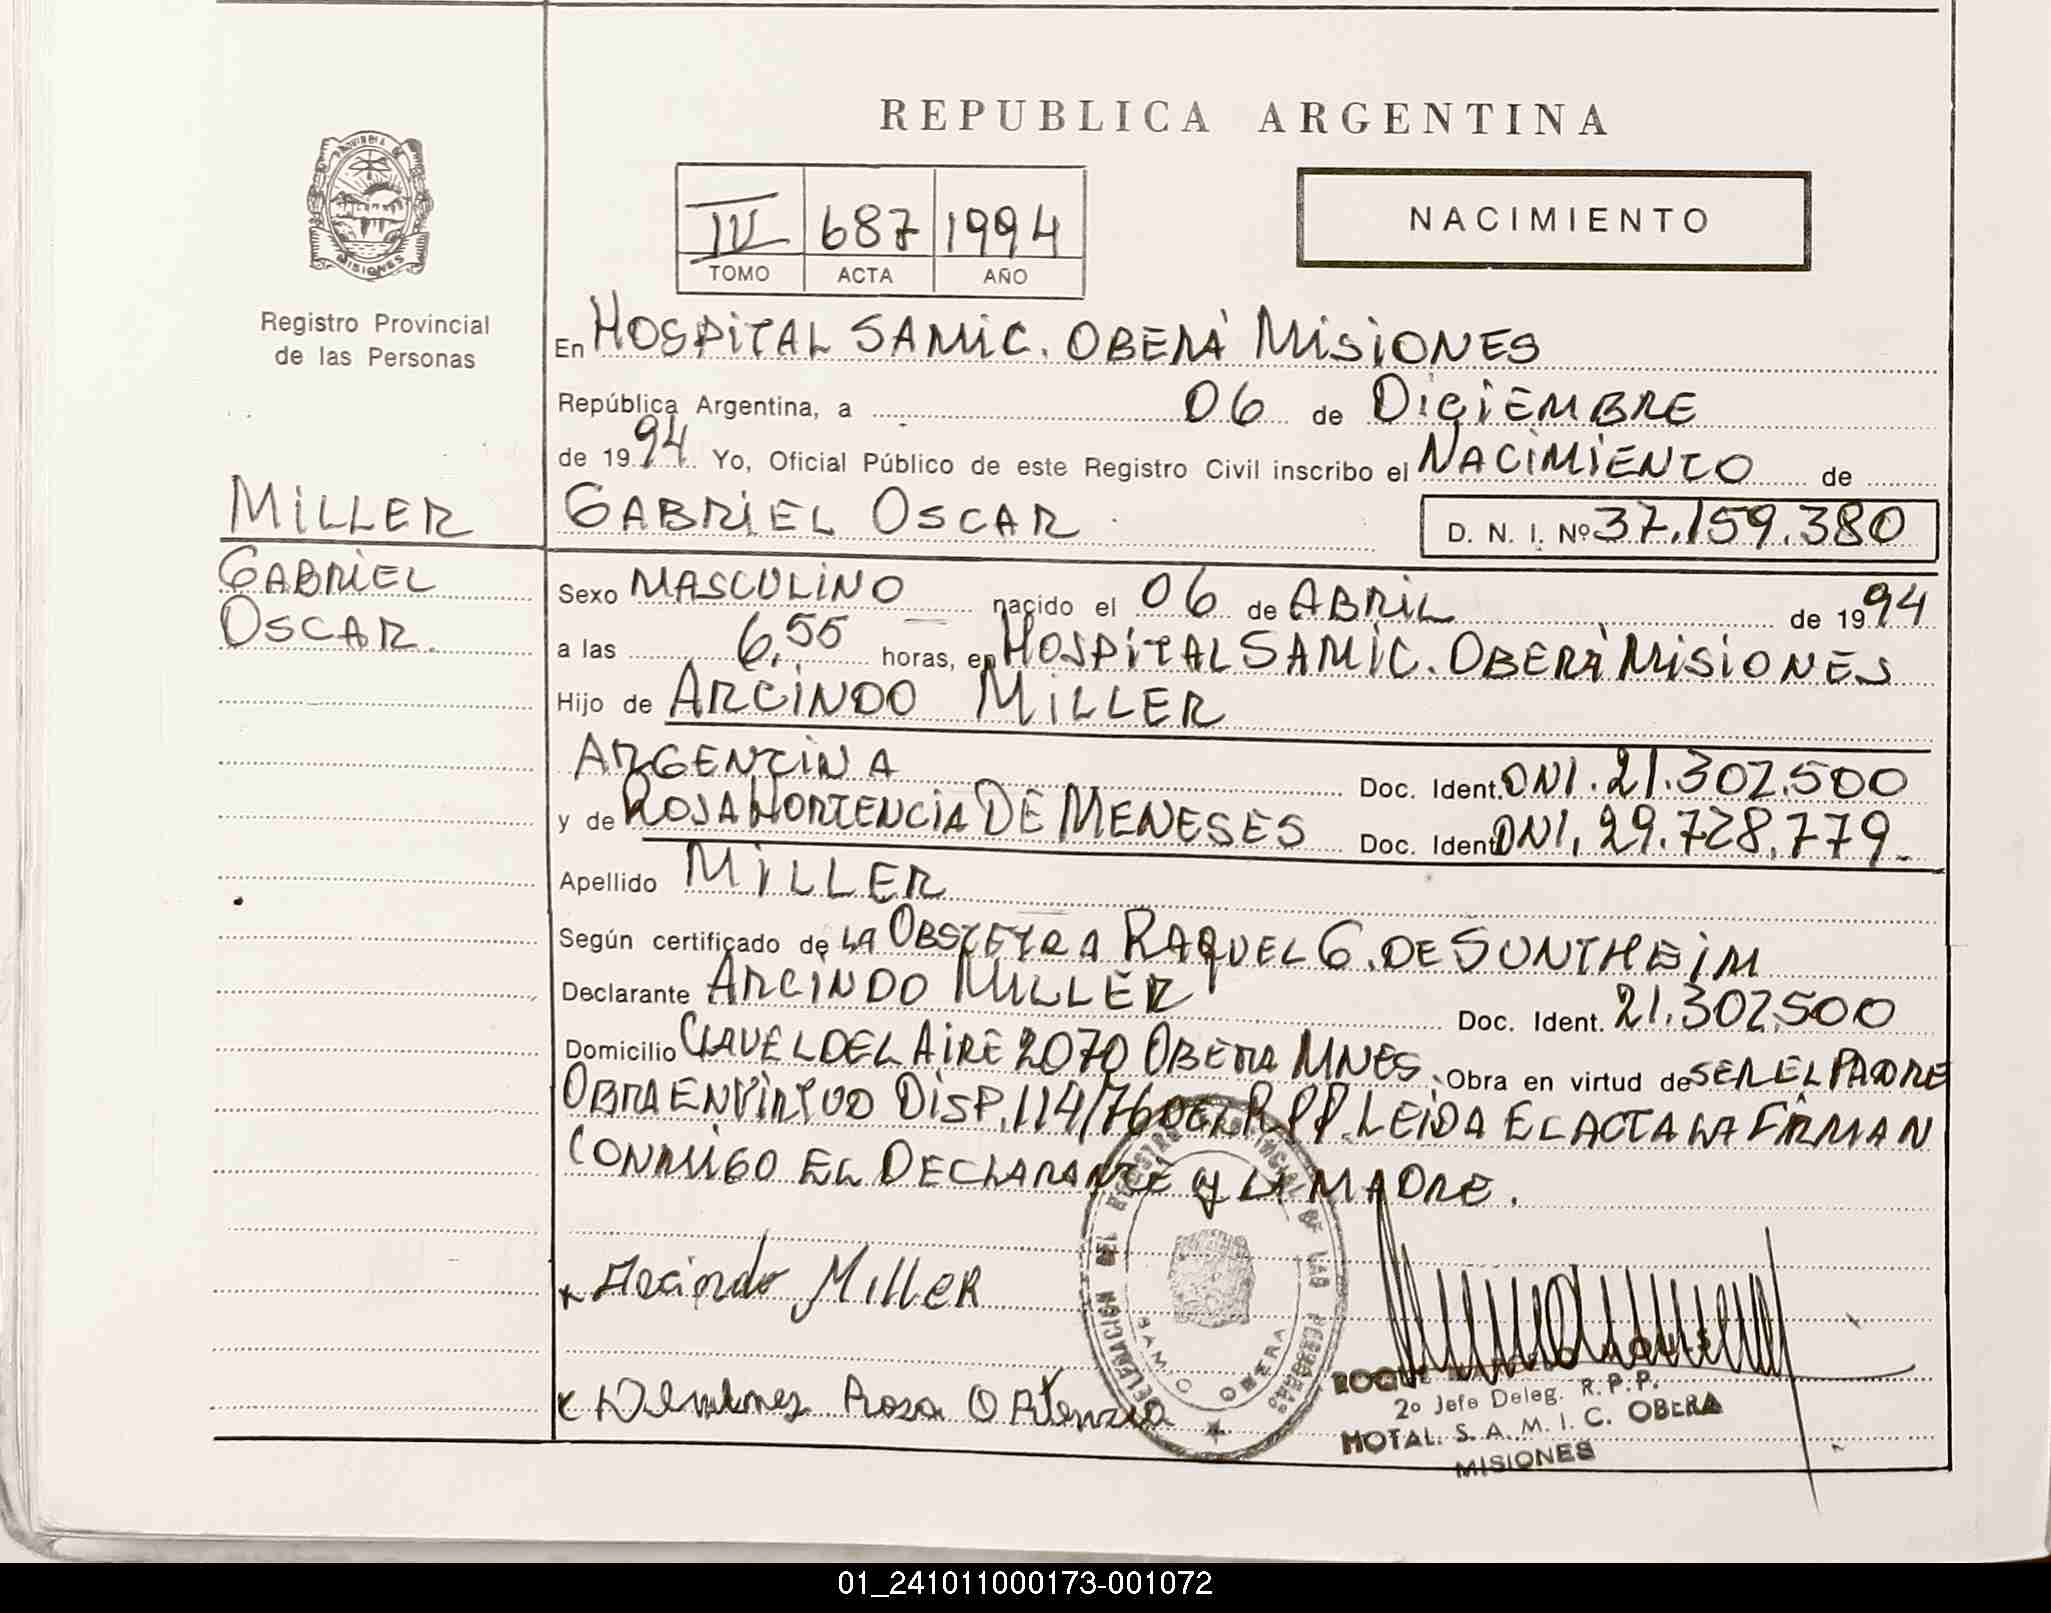 REPUBLICA ARGENTINA
PROVINCIA DE
MISIONES
Registro Provincial
de las Personas
IV 687 1994
TOMO ACTA AÑO
NACIMIENTO
En HOSPITAL SAMIC. OBERÁ MISIONES
República Argentina, a 06 de DICIEMBRE
de 1994 Yo, Oficial Público de este Registro Civil inscribo el NACIMIENTO de
MILLER
GABRIEL OSCAR
D. N. I. Nº 37.159.380
GABRIEL
OSCAR.
Sexo MASCULINO nacido el 06 de ABRIL de 1994
a las 6,55 horas, en HOSPITAL SAMIC. OBERÁ MISIONES
Hijo de ARCINDO MILLER
ARGENTINA Doc. Ident. DNI. 21.302.500
y de ROSA HORTENCIA DE MENESES Doc. Ident. DNI, 29.728.779.
Apellido MILLER
Según certificado de LA OBSTETRA RAQUEL G. DE SUNTHEIM
Declarante ARCINDO MILLER Doc. Ident. 21.302.500
Domicilio CLAVEL DEL AIRE 2070 OBERA MNES. Obra en virtud de SER EL PADRE
OBRA EN VIRTUD DISP. 114/76 DEL R.P.P. LEIDA EL ACTA LA FIRMAN
CONMIGO EL DECLARANTE Y LA MADRE.
x Arcindo Miller
x Rosa Ortencia
REGISTRO PROVINCIAL DE LAS PERSONAS
DELEGACION
SAMIC OBERA
ROQUE
2º Jefe Deleg. R.P.P.
HOTAL. S. A. M. I. C. OBERA
MISIONES
01_241011000173-001072